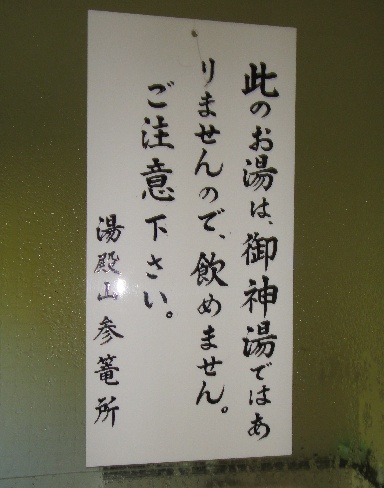 此のお湯は、御神湯ではあ
りませんので、飲めません。
ご注意下さい。
湯殿山参篭所